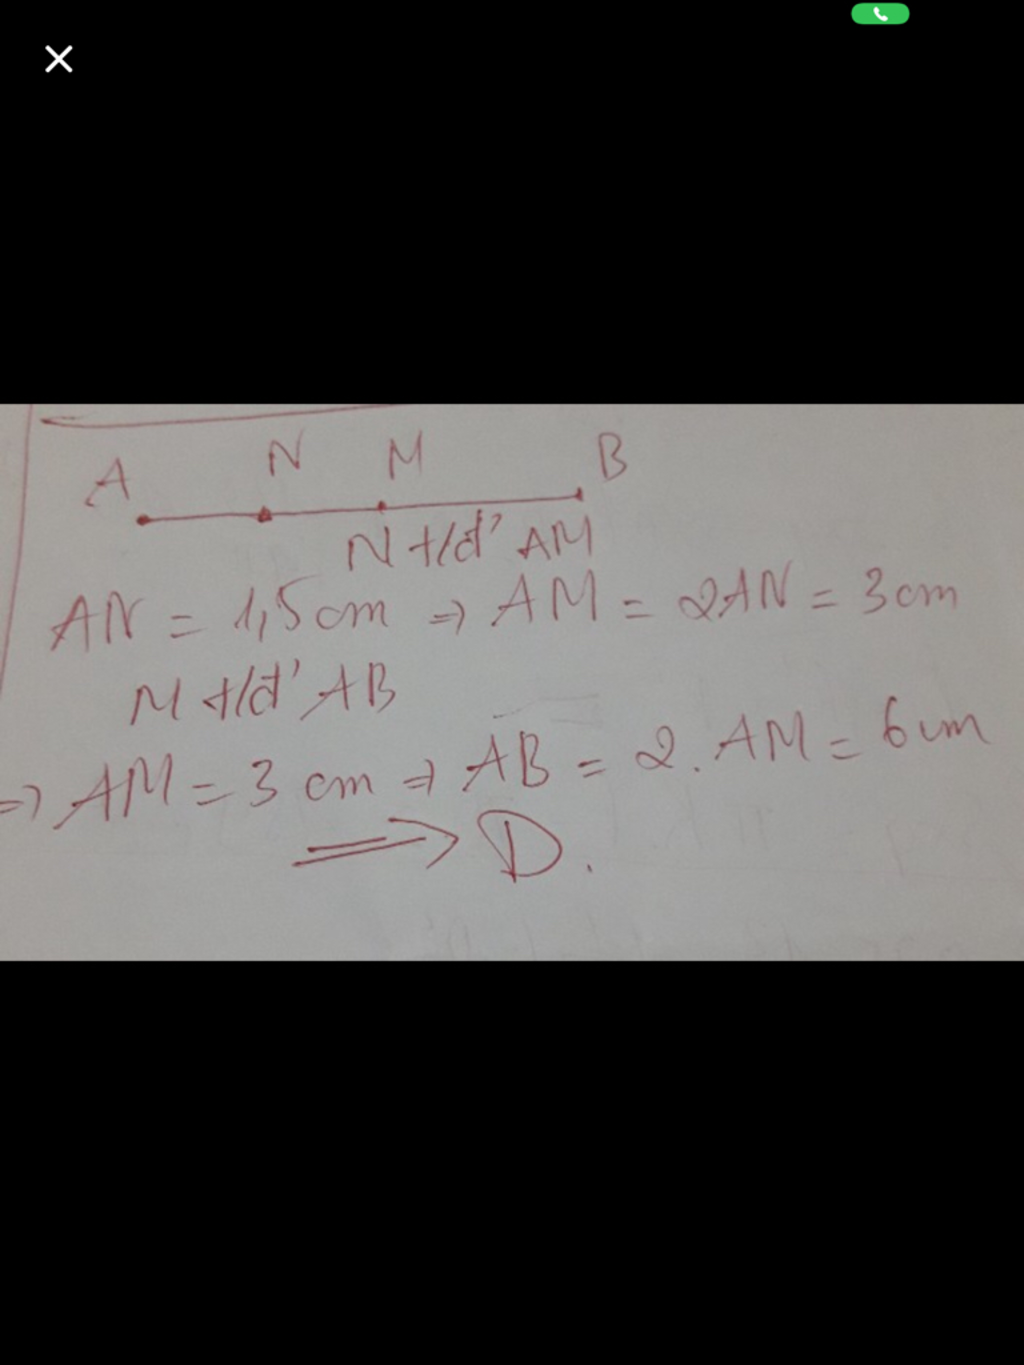 A N M B
N t/đ' AM
AN = 1,5cm => AM = 2AN = 3cm
M t/đ' AB
=> AM = 3 cm => AB = 2. AM = 6cm
=> D.